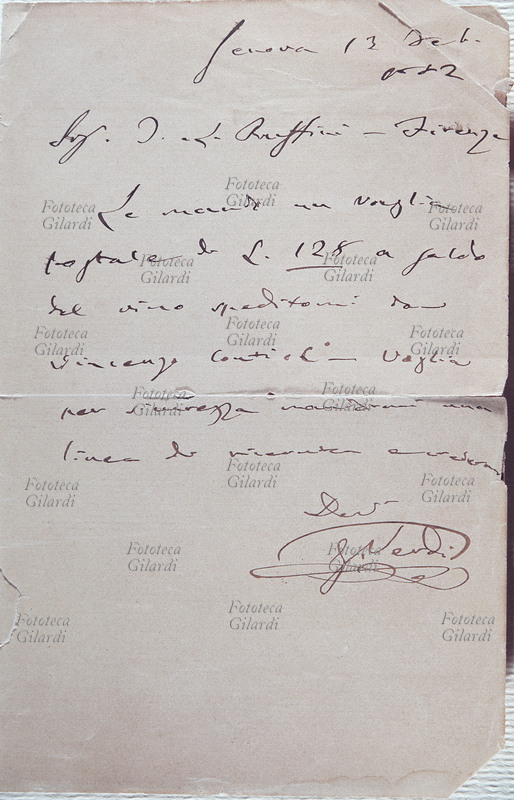 Genova 13 Feb.
1882
Sig. D. L. Ruffini – Firenze
Le mando un Vaglia
postale di L. 128 a saldo
del vino speditomi da
Vincenzo – Voglia
per sicurezza mandarmi una
linea di ricevuta e credermi
Dev
G. Verdi
Fototeca
Gilardi
Fototeca
Gilardi
Fototeca
Gilardi
Fototeca
Gilardi
Fototeca
Gilardi
Fototeca
Gilardi
Fototeca
Gilardi
Fototeca
Gilardi
Fototeca
Gilardi
Fototeca
Gilardi
Fototeca
Gilardi
Fototeca
Gilardi
Fototeca
Gilardi
Fototeca
Gilardi
Fototeca
Gilardi
Fototeca
Gilardi
Fototeca
Gilardi
Fototeca
Gilardi